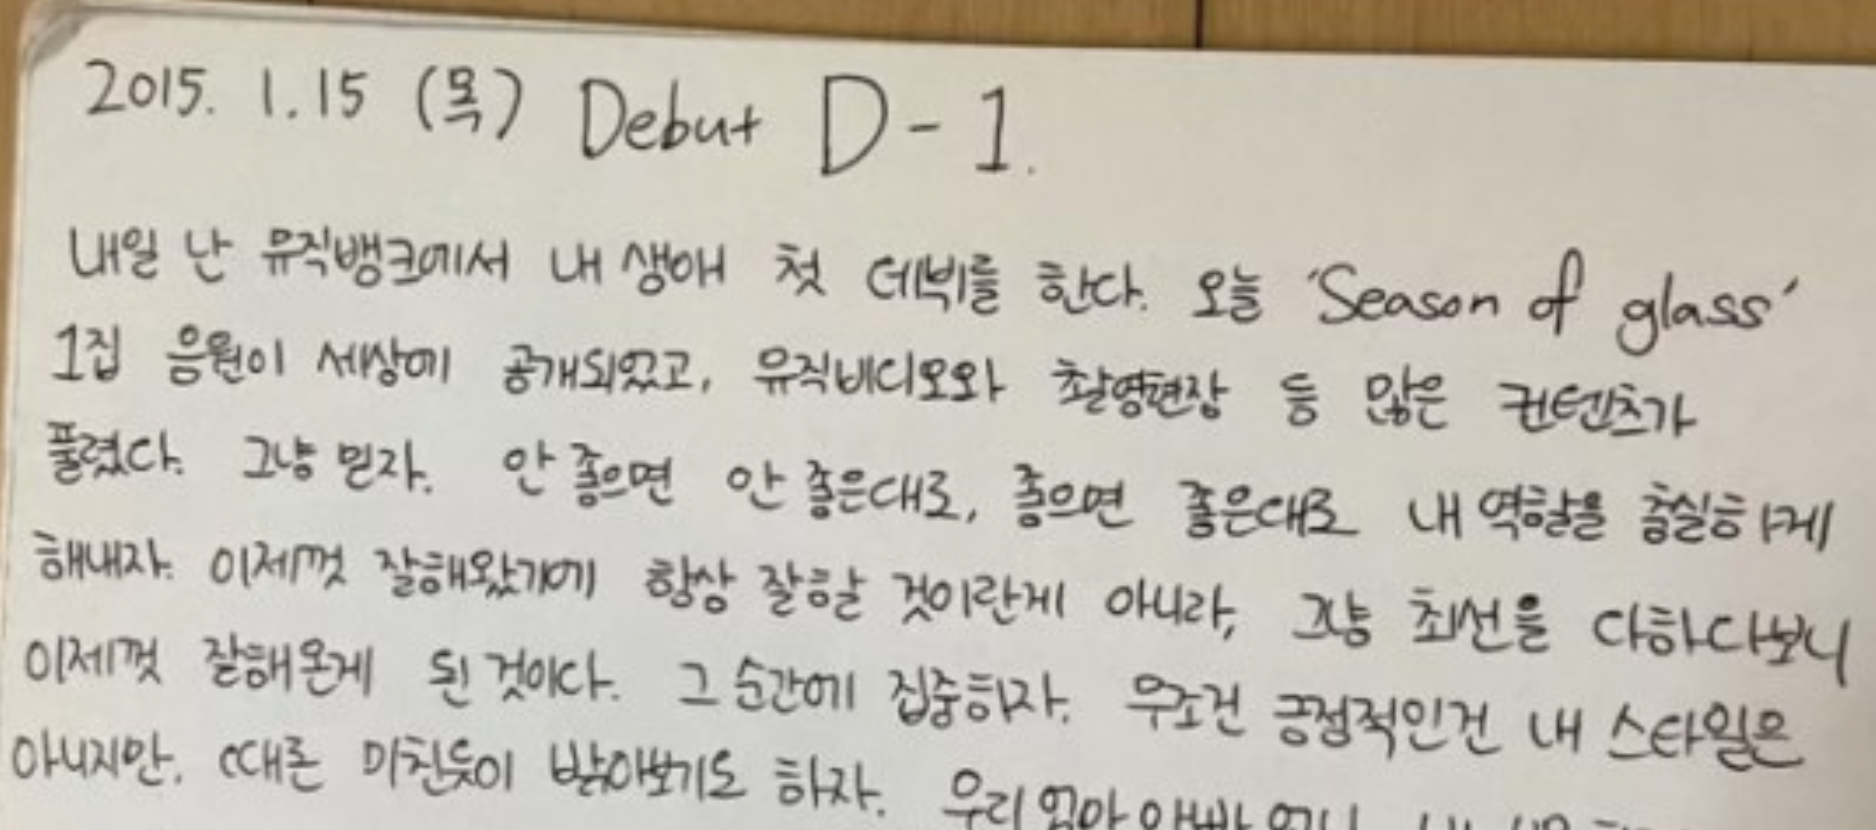 2015. 1.15 (목) Debut D-1.
내일 난 뮤직뱅크에서 내 생애 첫 데뷔를 한다. 오늘 'Season of glass'
1집 음원이 세상에 공개되었고, 뮤직비디오와 촬영현장 등 많은 컨텐츠가
풀렸다. 그냥 믿자. 안 좋으면 안 좋은대로, 좋으면 좋은대로 내 역할을 충실하게
해내자. 이제껏 잘해왔기에 항상 잘할 것이란게 아니라, 그냥 최선을 다하다보니
이제껏 잘해온게 된 것이다. 그 순간에 집중하자. 무조건 긍정적인건 내 스타일은
아니지만, 때론 미친듯이 밝아보기도 하자. 우리 엄마 아빠 언니